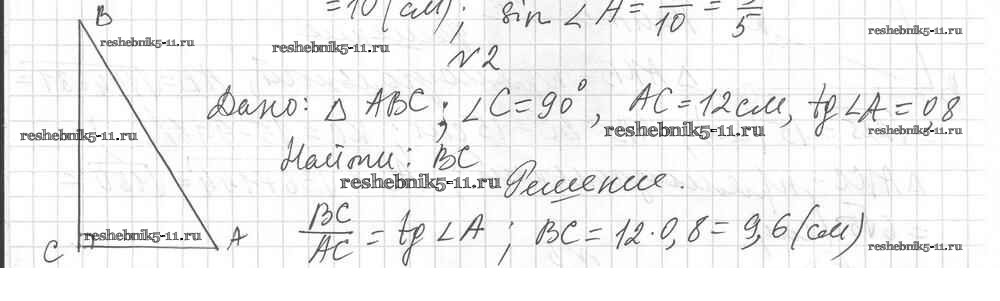 = 10 (см); sin ∠A = /10 = /5
B
reshebnik5-11.ru
reshebnik5-11.ru
reshebnik5-11.ru
№2
Дано: △ ABC; ∠C = 90°, AC = 12 см, tg ∠A = 0,8
reshebnik5-11.ru
reshebnik5-11.ru
reshebnik5-11.ru
Найти: BC
reshebnik5-11.ru
Решение.
BC/AC = tg ∠A; BC = 12 · 0,8 = 9,6 (см)
C
reshebnik5-11.ru
A
reshebnik5-11.ru